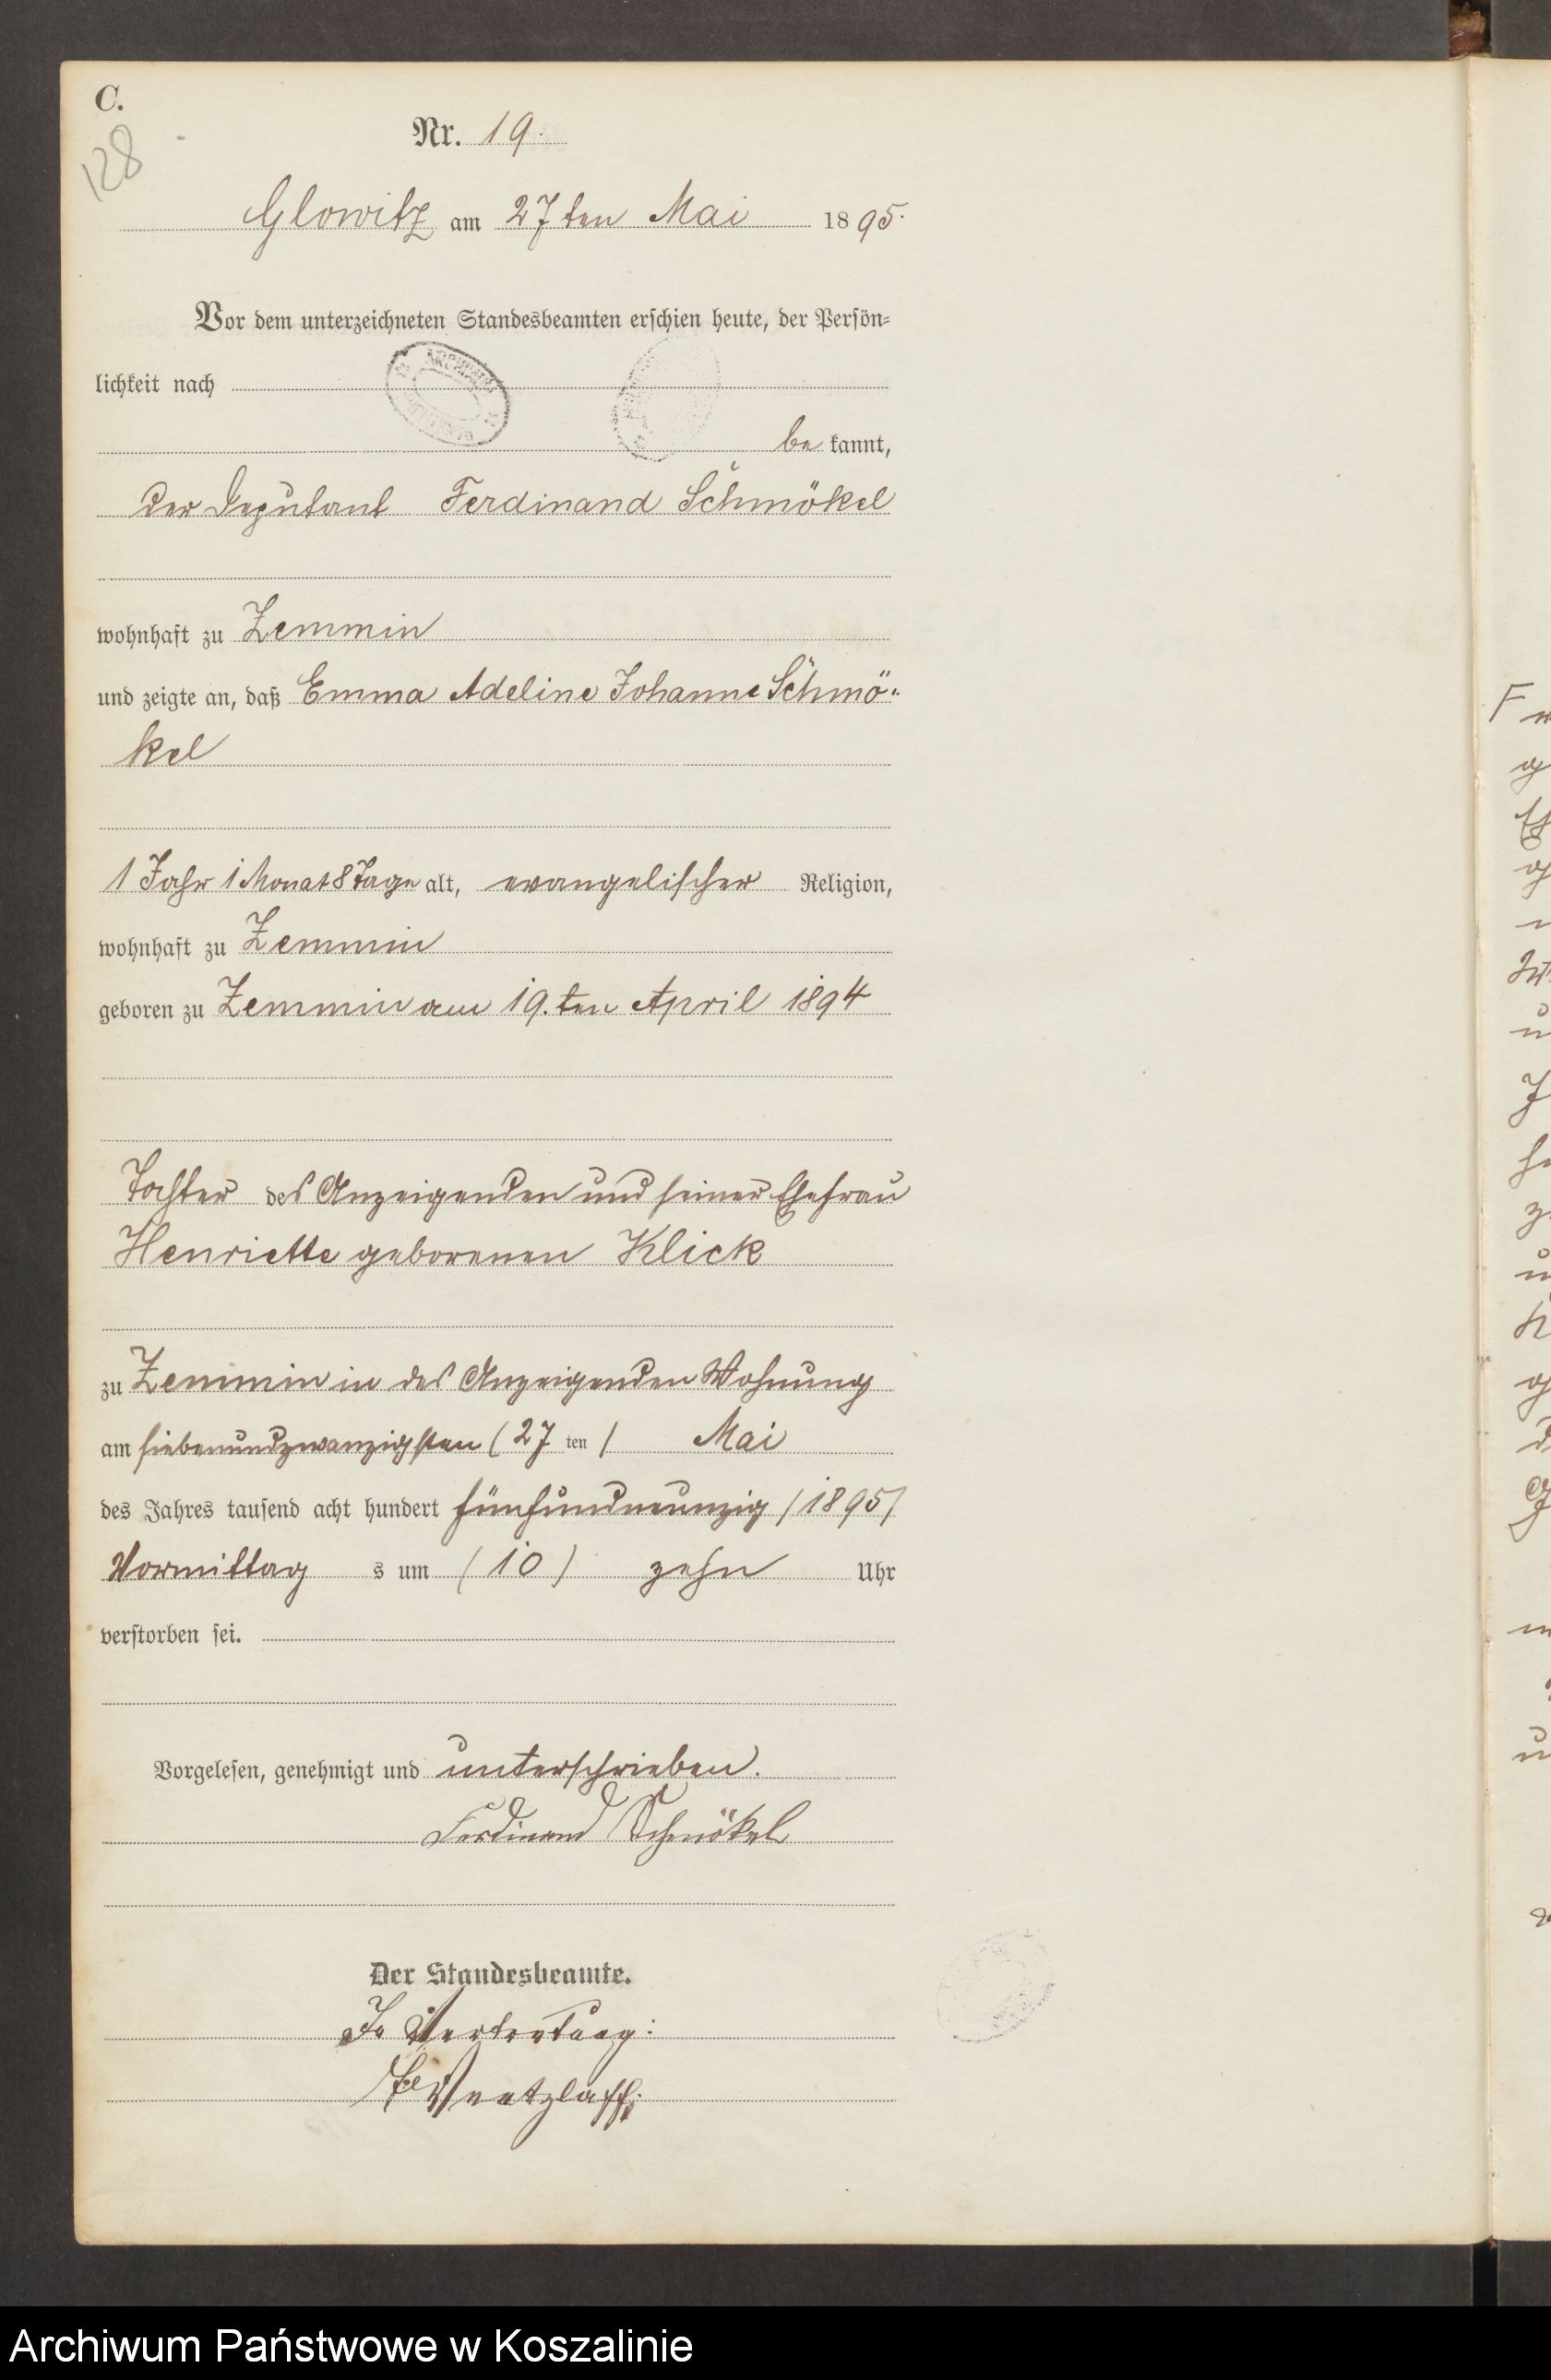 C.
128
Nr. 19.
Glowitz am 27ten Mai 1895.
Vor dem unterzeichneten Standesbeamten erschien heute, der Persön=
lichkeit nach
be kannt,
der Deputant Ferdinand Schmökel
wohnhaft zu Zemmin
und zeigte an, daß Emma Adeline Johanne Schmö=
kel
1 Jahr 1 Monat 8 Tage alt, evangelischer Religion,
wohnhaft zu Zemmin
geboren zu Zemmin am 19.ten April 1894
Tochter des Anzeigenden und seiner Ehefrau
Henriette geborenen Klick
zu Zemmin in des Anzeigenden Wohnung
am siebenundzwanzigsten (27 ten) Mai
des Jahres tausend acht hundert fünfundneunzig (1895)
Vormittag s um (10) zehn Uhr
verstorben sei.
Vorgelesen, genehmigt und unterschrieben.
Ferdinand Schmökel
Der Standesbeamte.
In Vertretung:
Archiwum Państwowe w Koszalinie